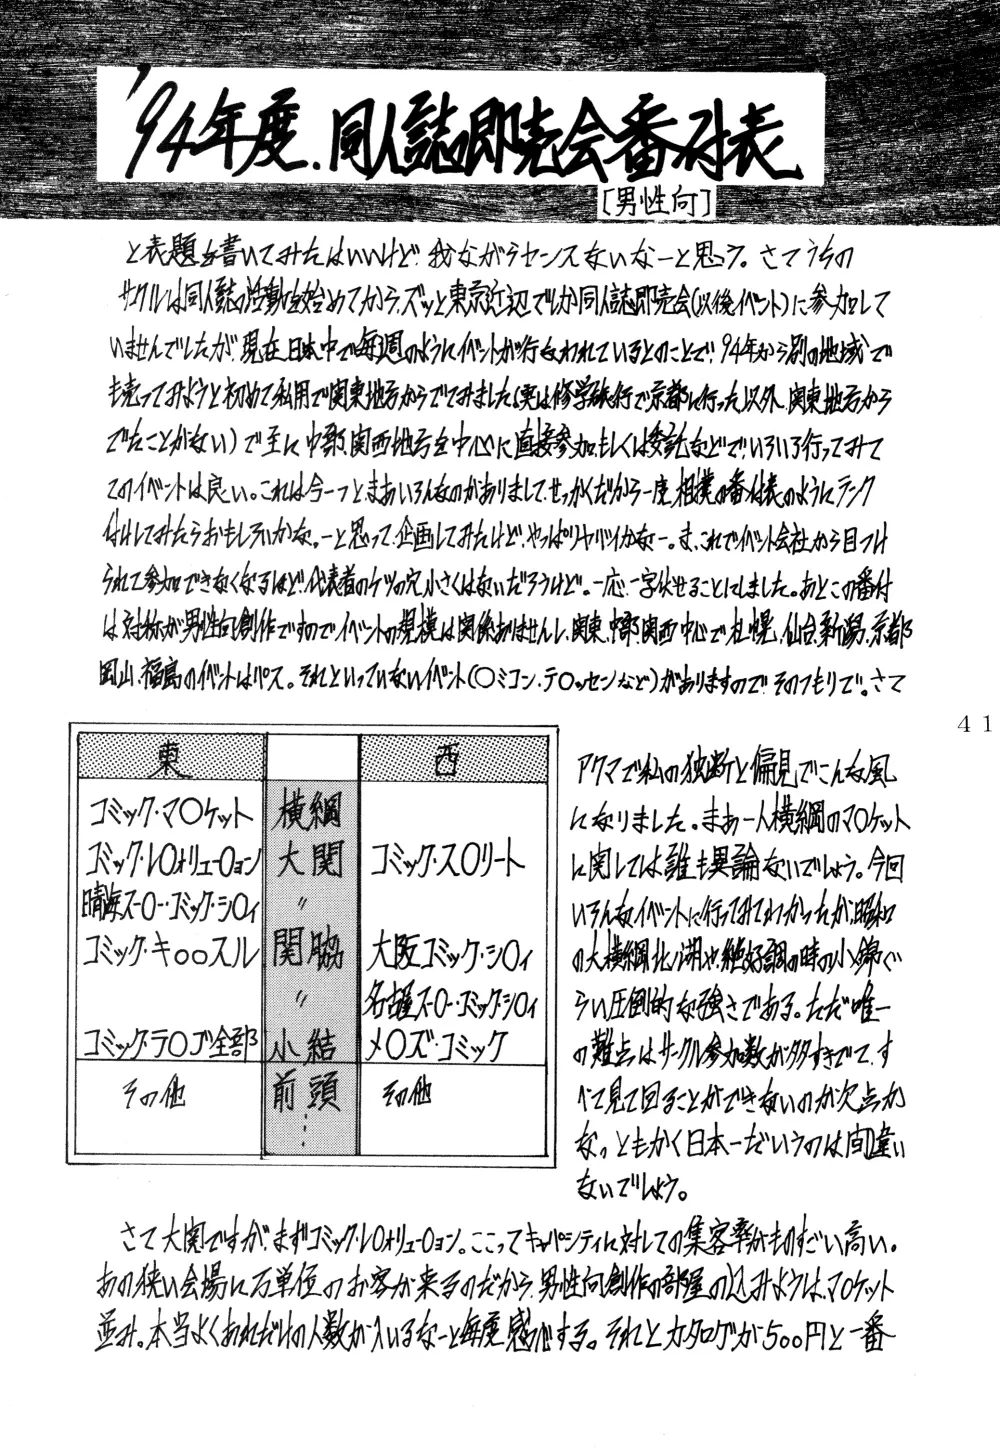 '94年度.同人誌即売会番付表
[男性向]
と表題を書いてみたはいいけど、我ながらセンスないなーと思う。さてうちの
サークルは同人誌の活動を始めてから、ズッと東京近辺でしか同人誌即売会(以後イベント)に参加して
いませんでしたが、現在、日本中で毎週のようにイベントが行なわれているとのことで、94年から別の地域で
も売ってみようと初めて私用で関東地方からでてみました(実は修学旅行で京都に行った以外、関東地方から
でたことがない)で主に中部、関西地方を中心に直接参加、もしくは委託などで、いろいろ行ってみて
このイベントは良い。これは今一つとまあいろんなのがありまして、せっかくだから一度、相撲の番付表のようにランク
付けしてみたらおもしろいかな。ーと思って、企画してみたけど、やっぱりヤバイかなー。ま、これでイベント会社から目つけ
られて参加できなくなるほど、代表者のケツの穴小さくはないだろうけど。一応、一字伏せることにしました。あとこの番付
は対称が男性向創作ですのでイベントの規模は関係ありませんし、関東、中部、関西中心で札幌、仙台、新潟、京都
岡山、福島のイベントはパス。それといっていないイベント(○ミコン、テ○ッセンなど)がありますので、そのつもりで。さて
41
東 西
コミック・マ○ケット 横綱
コミック・レ○ォリュー○ョン 大関 コミック・ス○リート
晴海スー○ー・コミック・シ○ィ 〃
コミック・キ○○スル 関脇 大阪コミック・シ○ィ
〃 名古屋スー○ー・コミック・シ○ィ
コミック・テ○プ全部 小結 メ○ズ・コミック
その他 前頭 その他
アクマで私の独断と偏見でこんな風
になりました。まあ一人横綱のマ○ケット
に関しては誰も異論ないでしょう。今回
いろんなイベントに行ってみてわかったが、昭和
の大横綱北ノ湖や、絶好調の時の小錦ぐ
らい圧倒的な強さである。ただ唯一
の難点はサークル参加数が多すぎでて、す
べて見て回ることができないのが欠点か
な。ともかく日本一だというのは間違い
ないでしょう。
さて大関ですが、まずコミック・レ○ォリュー○ョン。ここってキャパシティに対しての集客率がものすごい高い。
あの狭い会場に万単位のお客が来るのだから、男性向創作の部屋の込みようは、マ○ケット
並み。本当よくあれだけの人数が入いるなーと毎度感心する。それとカタログが500円と一番